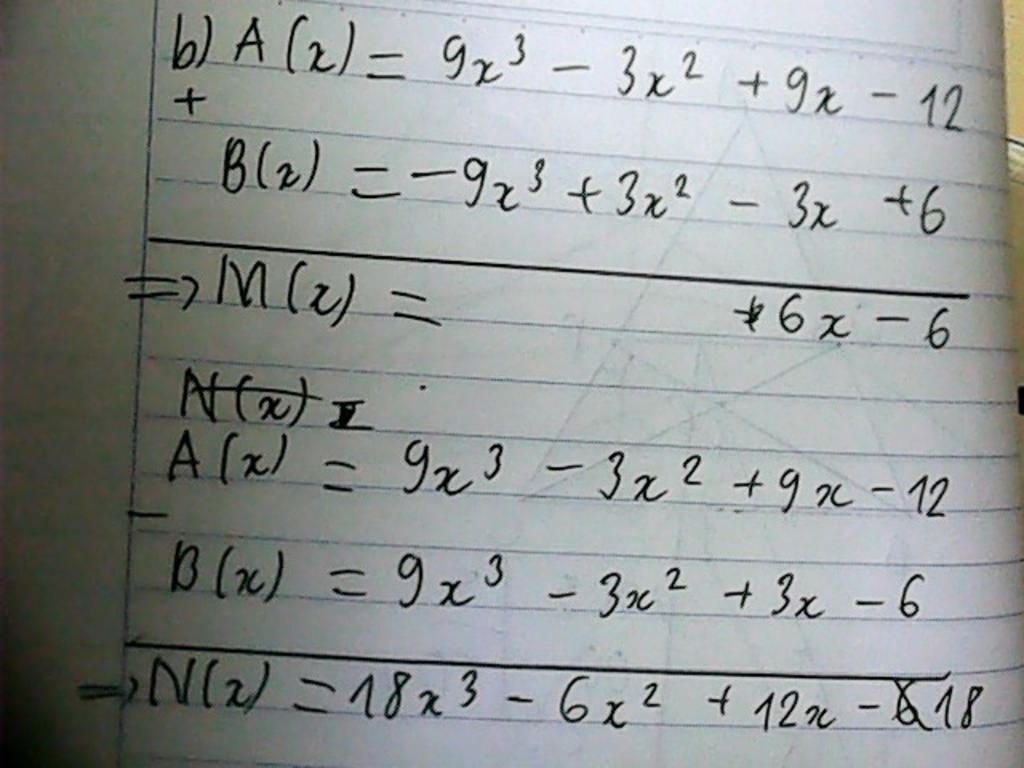 b) A(x) = 9x³ - 3x² + 9x - 12
+
B(x) = -9x³ + 3x² - 3x + 6
=> M(x) = +6x - 6
N(x) =
A(x) = 9x³ - 3x² + 9x - 12
-
B(x) = 9x³ - 3x² + 3x - 6
=> N(x) = 18x³ - 6x² + 12x - 18